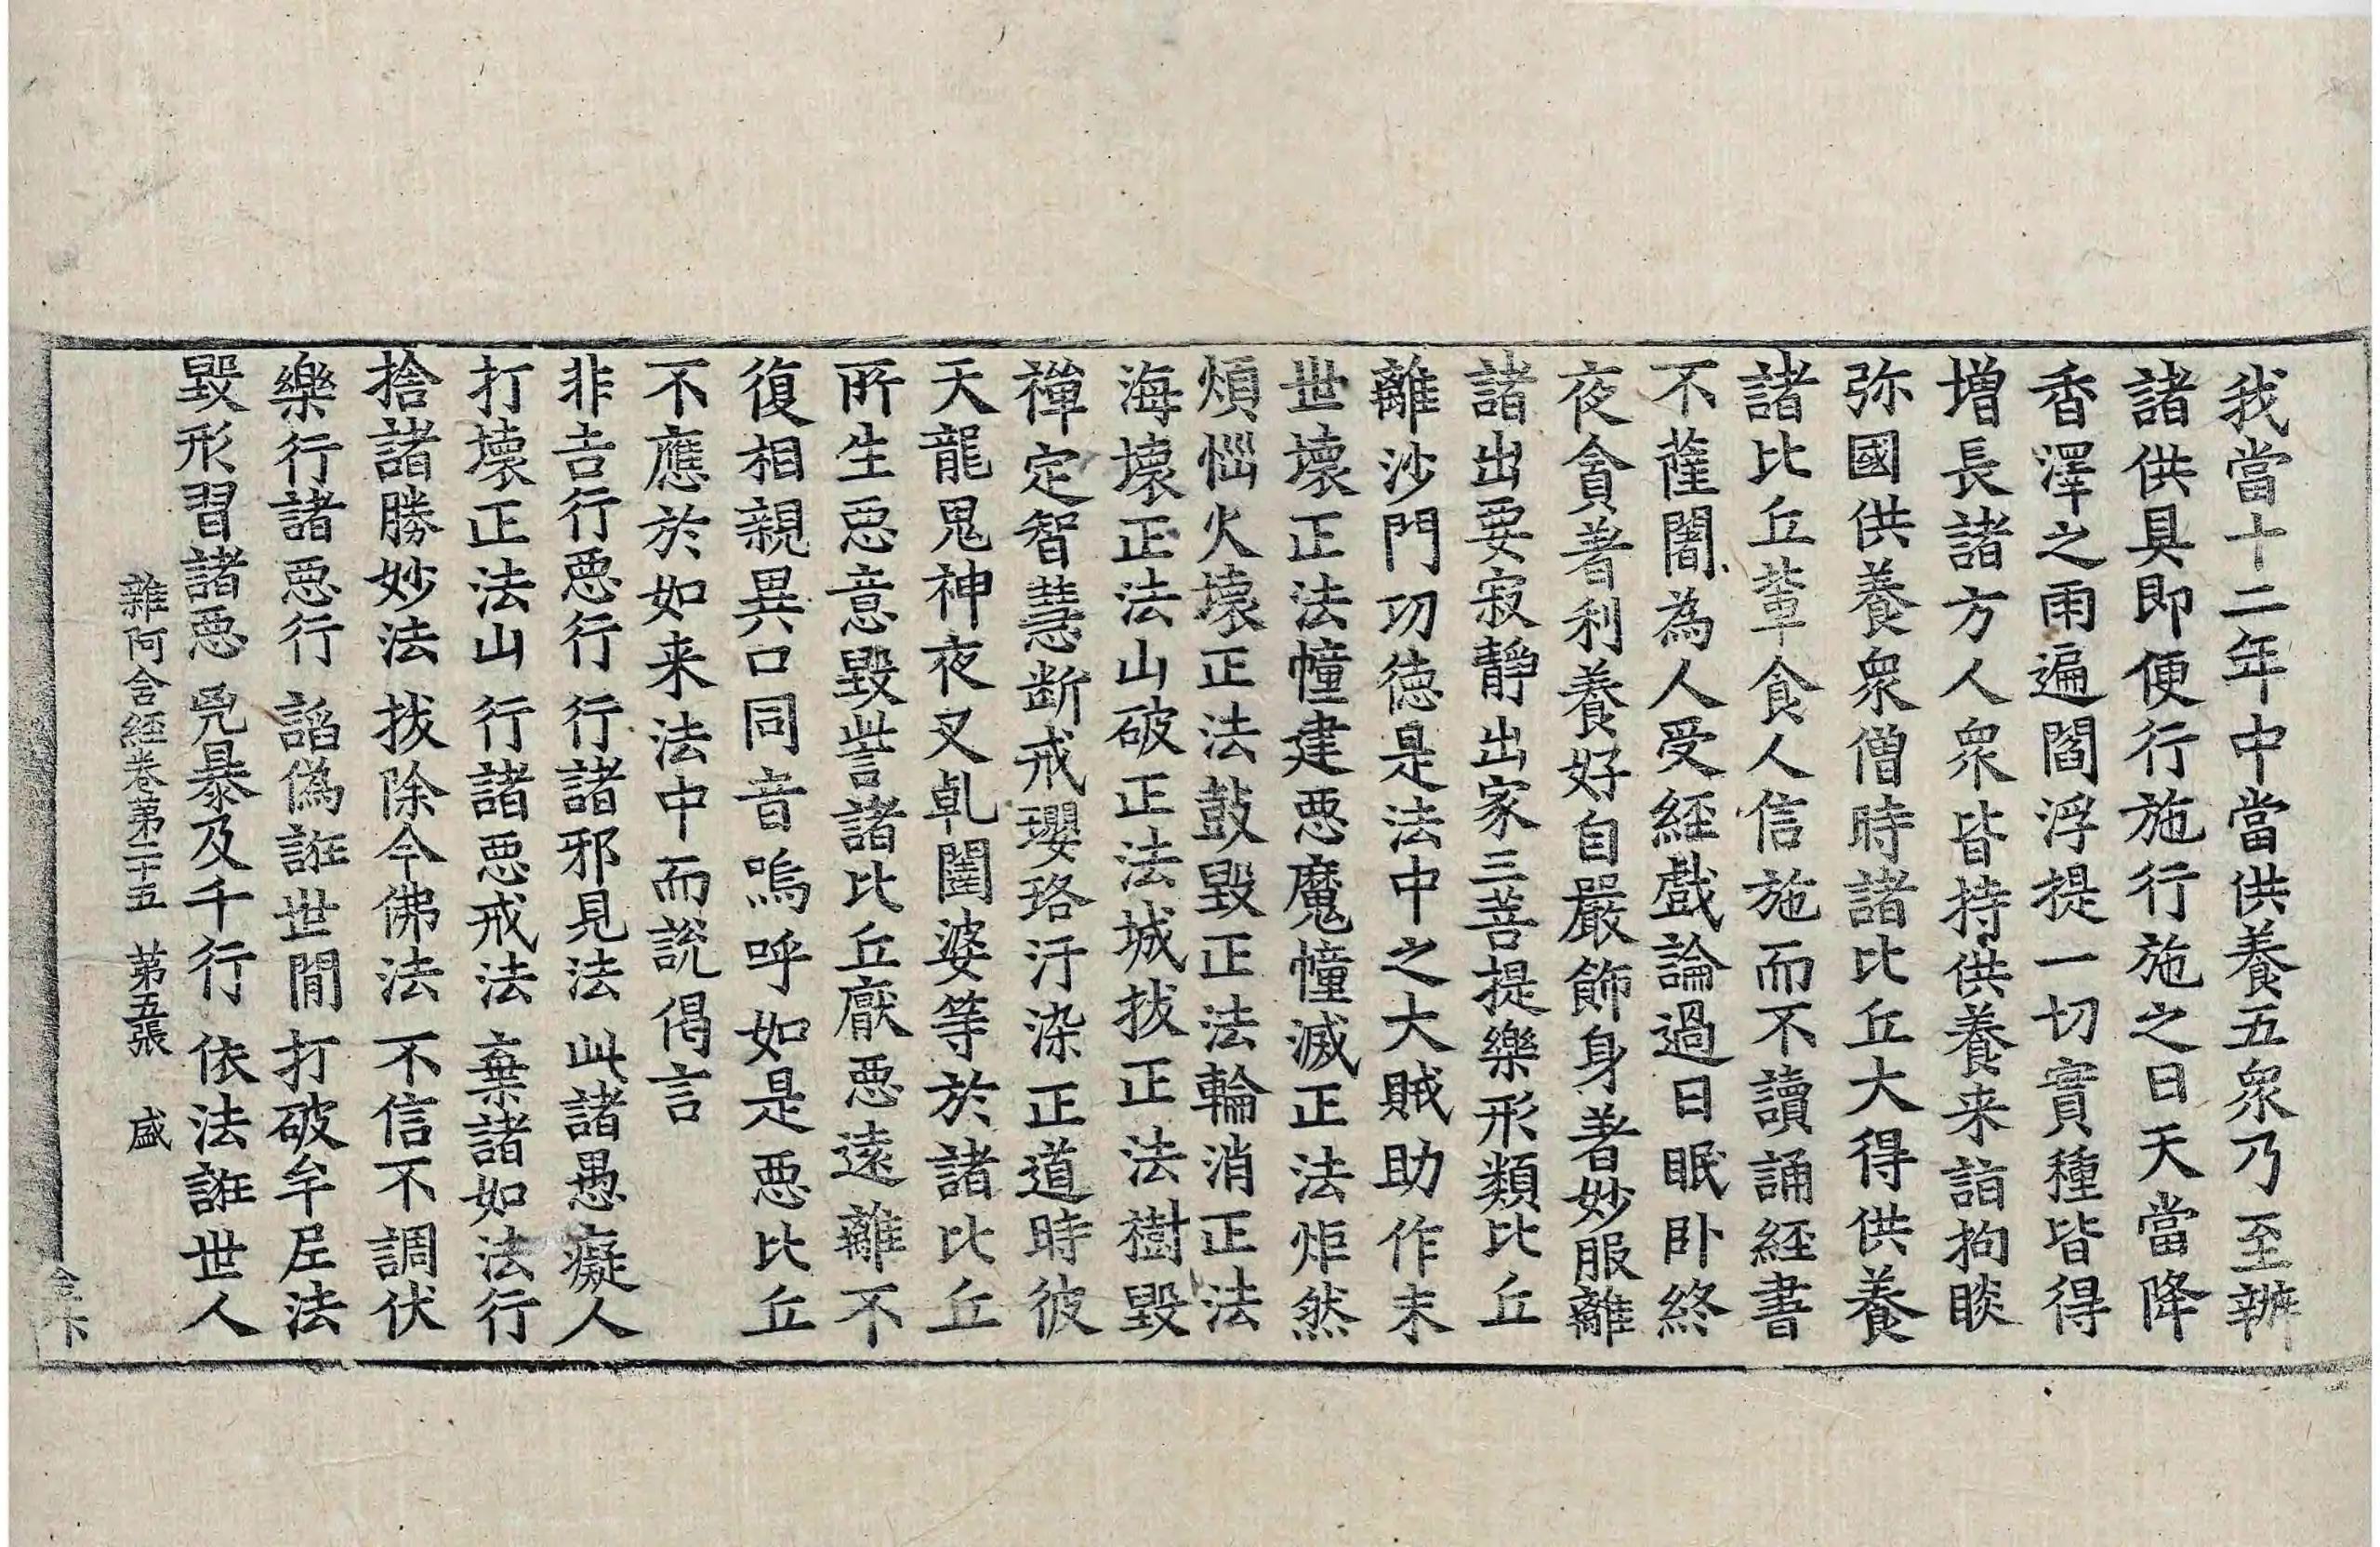 我當十二年中當供養五衆乃至辦
諸供具即便行施行施之日天當降
香澤之雨遍閻浮提一切實種皆得
增長諸方人衆皆持供養来詣拘睒
弥國供養衆僧時諸比丘大得供養
諸比丘輩食人信施而不讀誦經書
不薩闍為人受經戲論過日眠卧終
夜貪著利養好自嚴飾身著妙服離
諸出要寂靜出家三菩提樂形類比丘
離沙門功德是法中之大賊助作末
世壞正法幢建惡魔幢滅正法炬然
煩惱火壞正法鼓毀正法輪消正法
海壞正法山破正法城拔正法樹毀
禪定智慧斷戒瓔珞汙染正道時彼
天龍鬼神夜叉乹闥婆等於諸比丘
所生惡意毀訾諸比丘厭惡遠離不
復相親異口同音嗚呼如是惡比丘
不應於如来法中而說偈言
非吉行惡行 行諸邪見法 此諸愚癡人
打壞正法山 行諸惡戒法 棄諸如法行
捨諸勝妙法 拔除今佛法 不信不調伏
樂行諸惡行 謟偽誑世閒 打破牟尼法
毀形習諸惡 兇暴及千行 依法誑世人
雜阿含經卷第二十五 第五張 盛